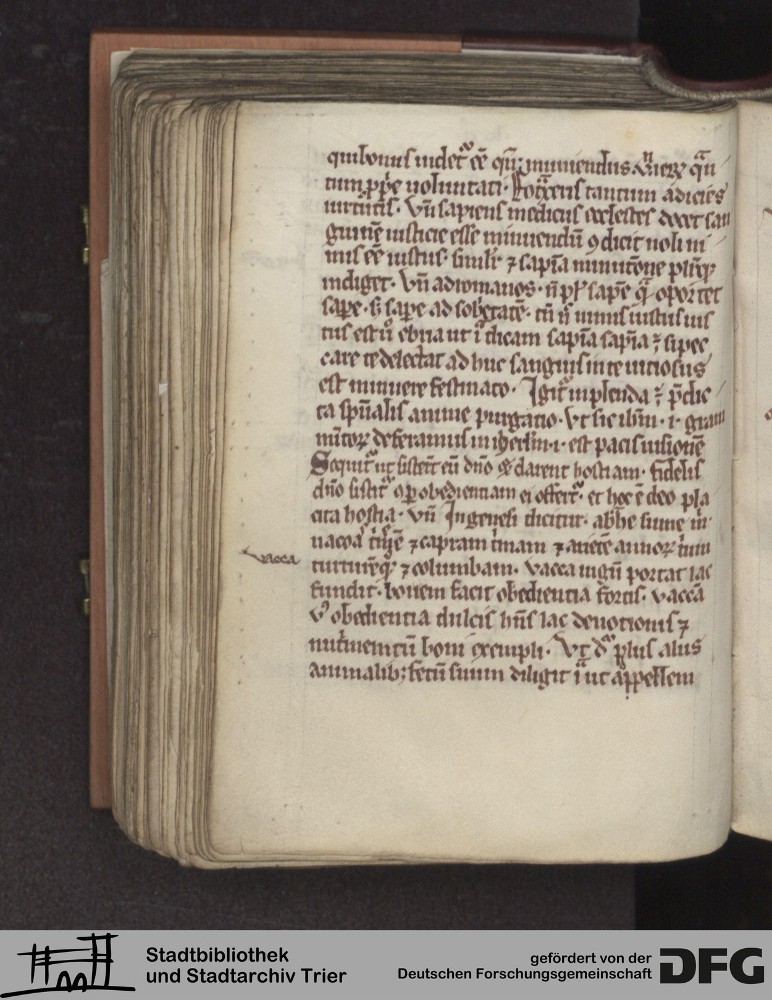 qui bonus uidet᷑ eē
tum ꝓp̄e uoluntati. tantum adicies
uirtutis. Vn̄ sapiens medicus eccl̄estes docet san
guinē iusticie esse minuendū ꝯ dicit noli ni
mis eē iustus. simil᷑r ⁊ sapīa
indiget. Vn̄ ad romanos. n̄ pl᷑ sape q̄ oportet
sape. s᷑ sape ad sob᷑etate. nimis iustus uis
ebria ut i᷑ dicam sapīa sapīa
care te delectat ad huc sanguis in te uiciosus
est minuere festinato. Igit᷑ inplenda ē p̄dic
ta sp̄ualis anime purgatio. Vt sic ibīm .i. gram
deferamus in ih̄erl̄m .i. est pacis uisionē
Sequit᷑ ut sisterēt eū dn̄o ⁊ darent hostiam. fidelis
dn̄o sistit᷑ obedienciam ei offert᷑. et hoc ē deo pla
cita hostia. Vn̄ In genesi dicitur. abh̄e sume m᷑
uaccā t᷑mē ⁊ capram t᷑mam ⁊ arietē annoꝝ t᷑um
turturēq᷑ ⁊ columbam. vacca iugū portat lac
fundit. bouem facit obedientia fortis. vaccā
v᷑ obedientia dulcis hn̄s lac deuotionis ⁊
nut᷑mentū boni exempli. Vt plus aliis
animalib; fetū suum diligit ut appellem
vacca
Stadtbibliothek
und Stadtarchiv Trier
gefördert von der
Deutschen Forschungsgemeinschaft
DFG